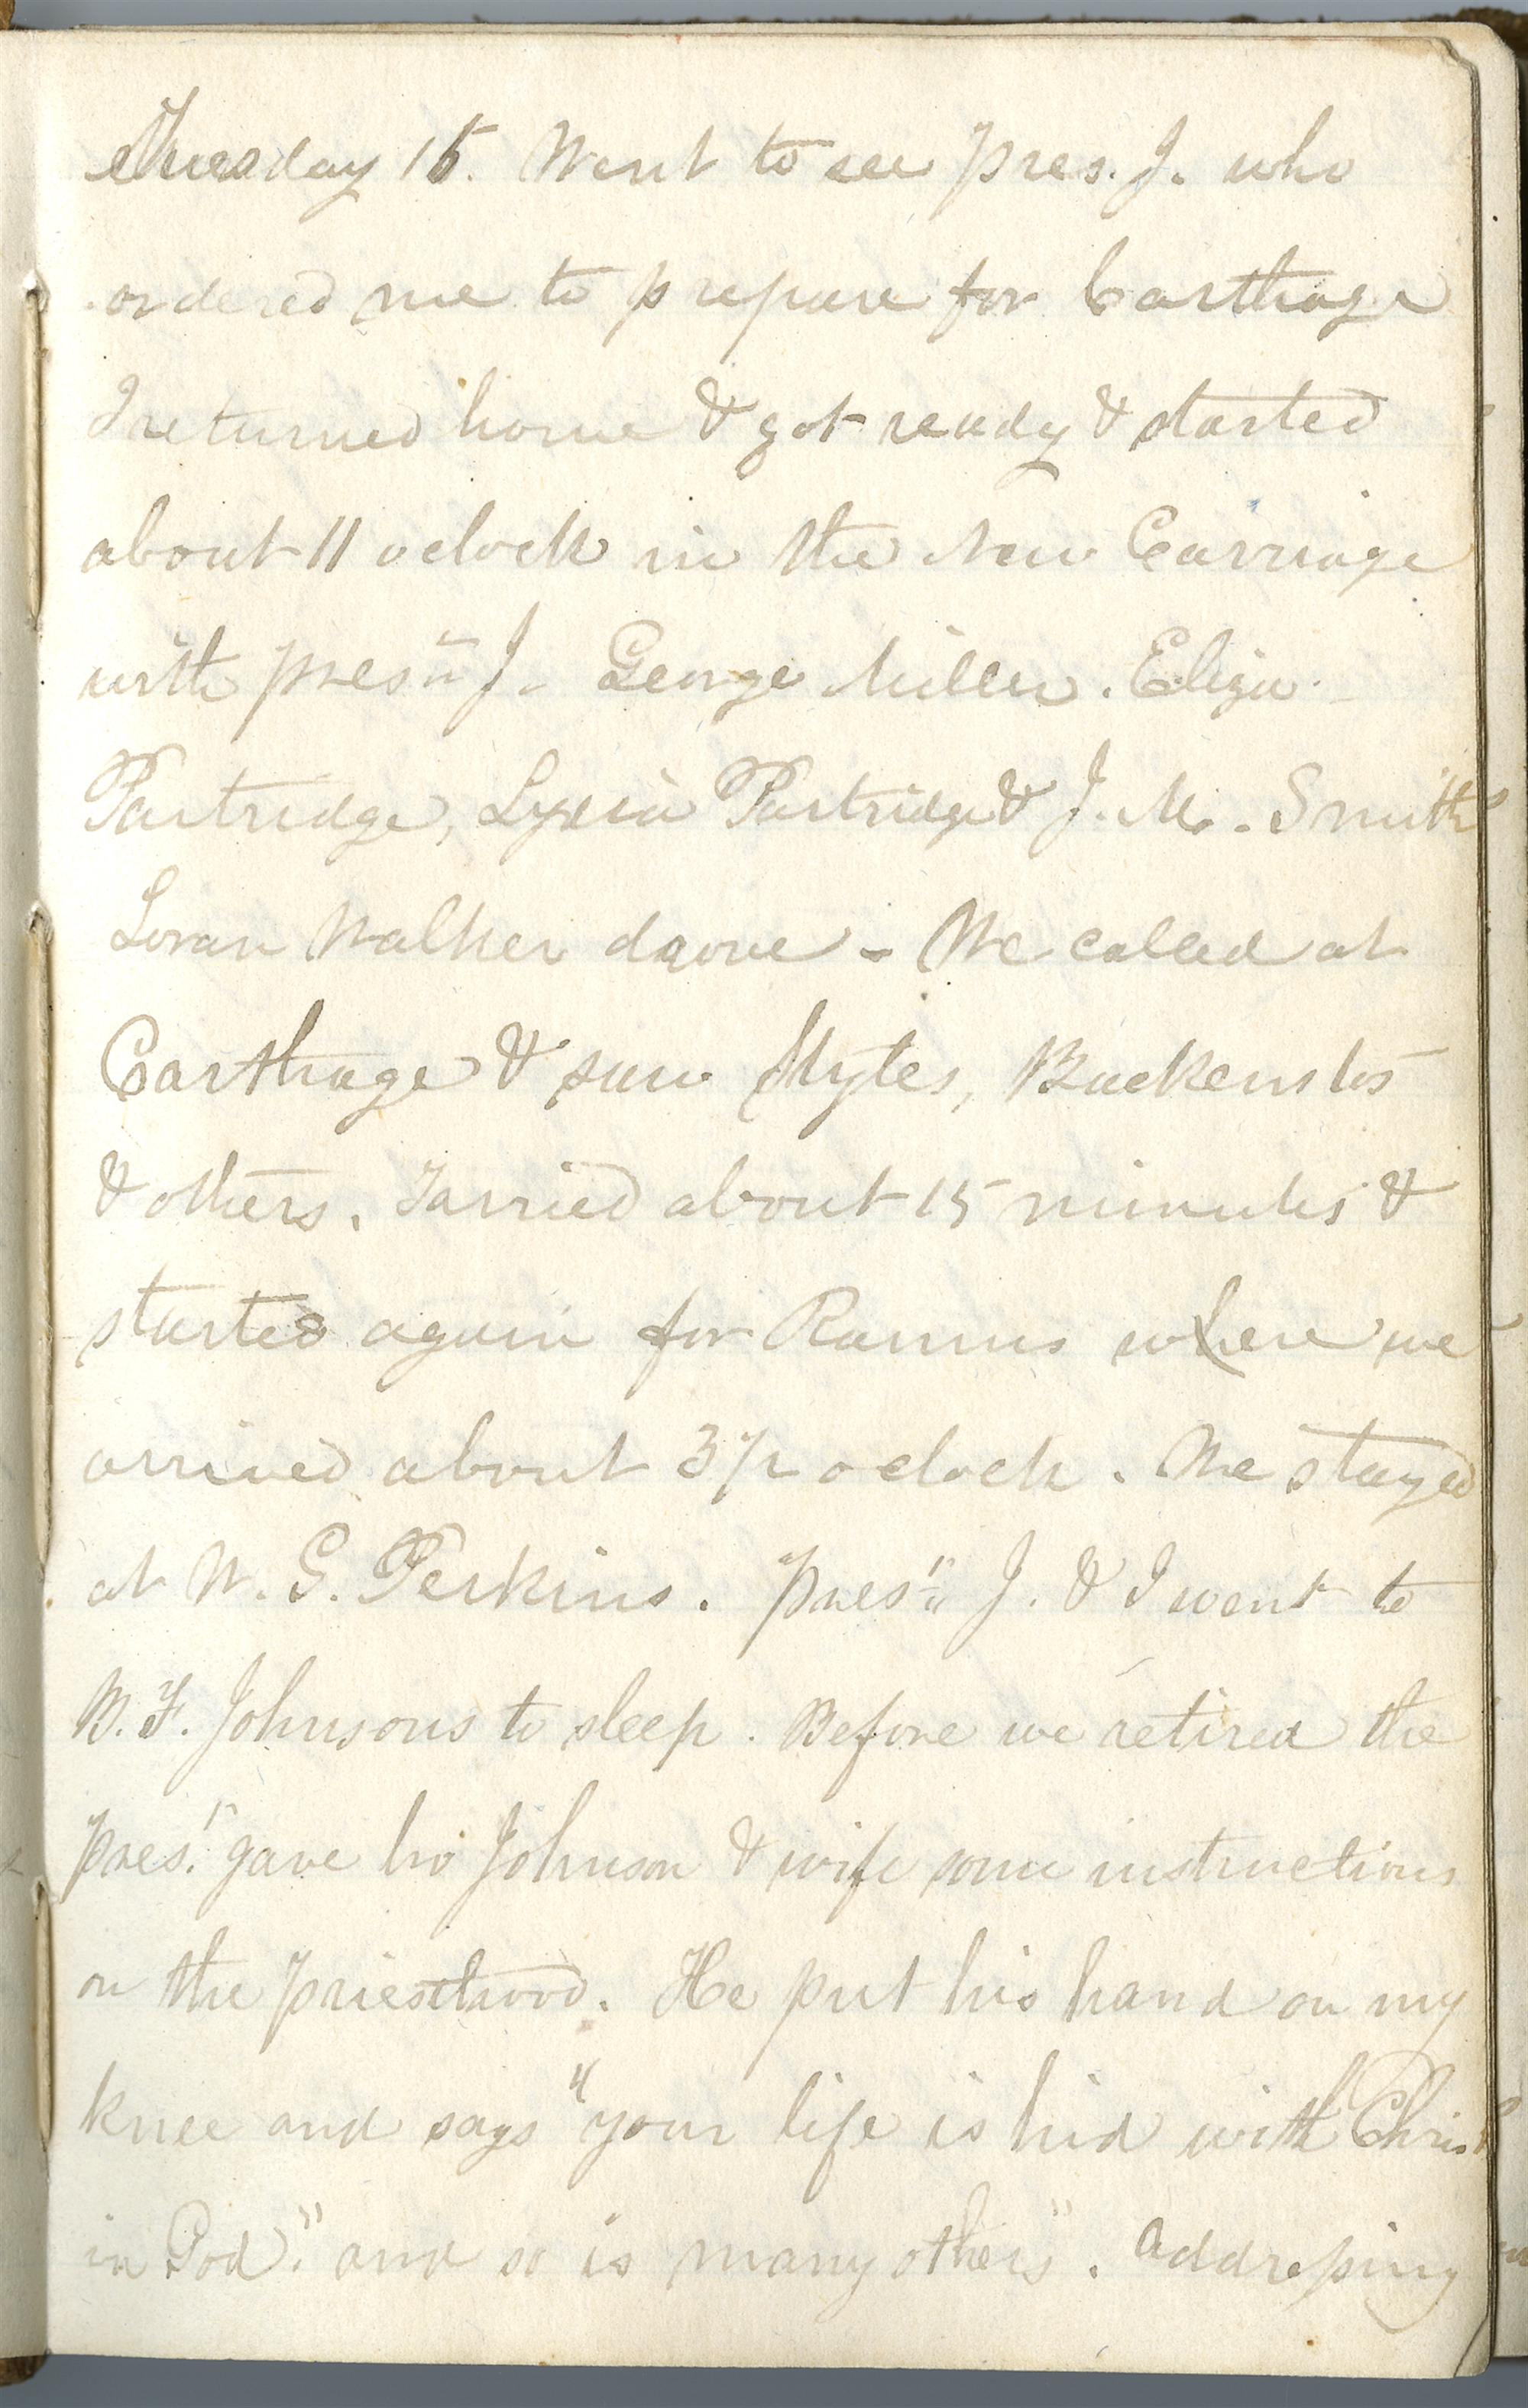 Thuesday 16. Went to see Pres. J. who
ordered me to prepare for Carthage
I returned home & got ready & started
about 11 o clock in the New Carriage
with pres.t J. George Miller. Eliza
Partridge, Lydia Partridge & J. M. Smith
Loran Walker drove - We called at
Carthage & saw Styles, Backenstos
& others. Tarried about 15 minutes &
started again for Ramus where we
arrived about 3 1/2 o clock. We stayed
at W. G. Perkins. Pres.t J. & I went to
B. F. Johnsons to sleep. Before we retired the
Pres.t gave bro Johnson & wife some instructions
on the priesthood. He put his hand on my
knee and says "your life is hid with Christ
in God." and so is many others". Addressing